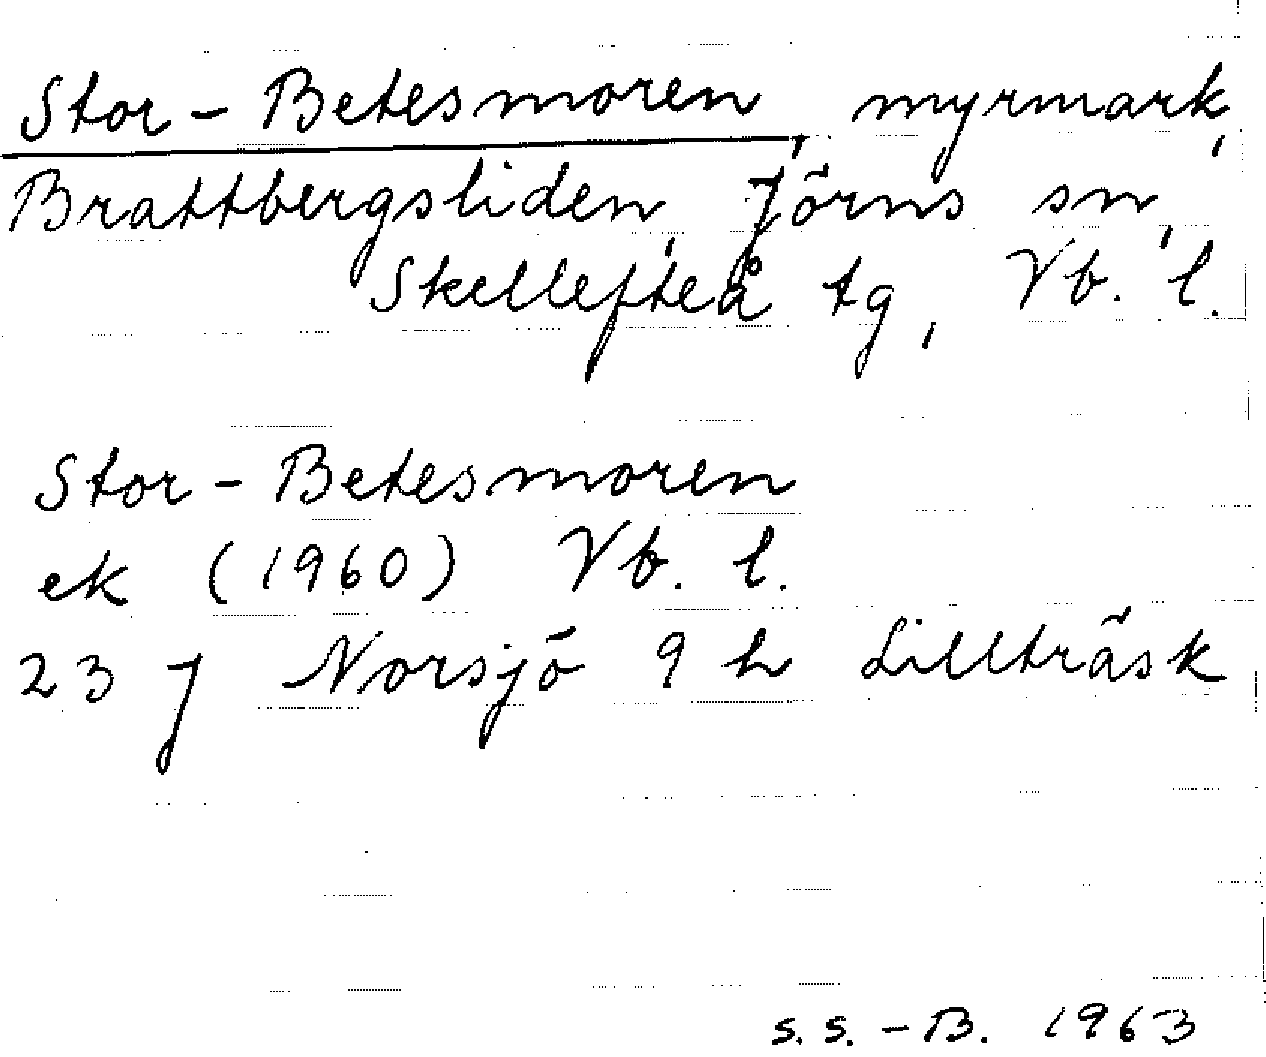 Stor-Betesmoren, myrmark,
Brattbergsliden, Jörns sn,
Skellefteå tg, Vb. l.
Stor-Betesmoren
ek (1960) Vb. l.
23 J Norsjö 9 h Lillträsk
S.S.-B. 1963